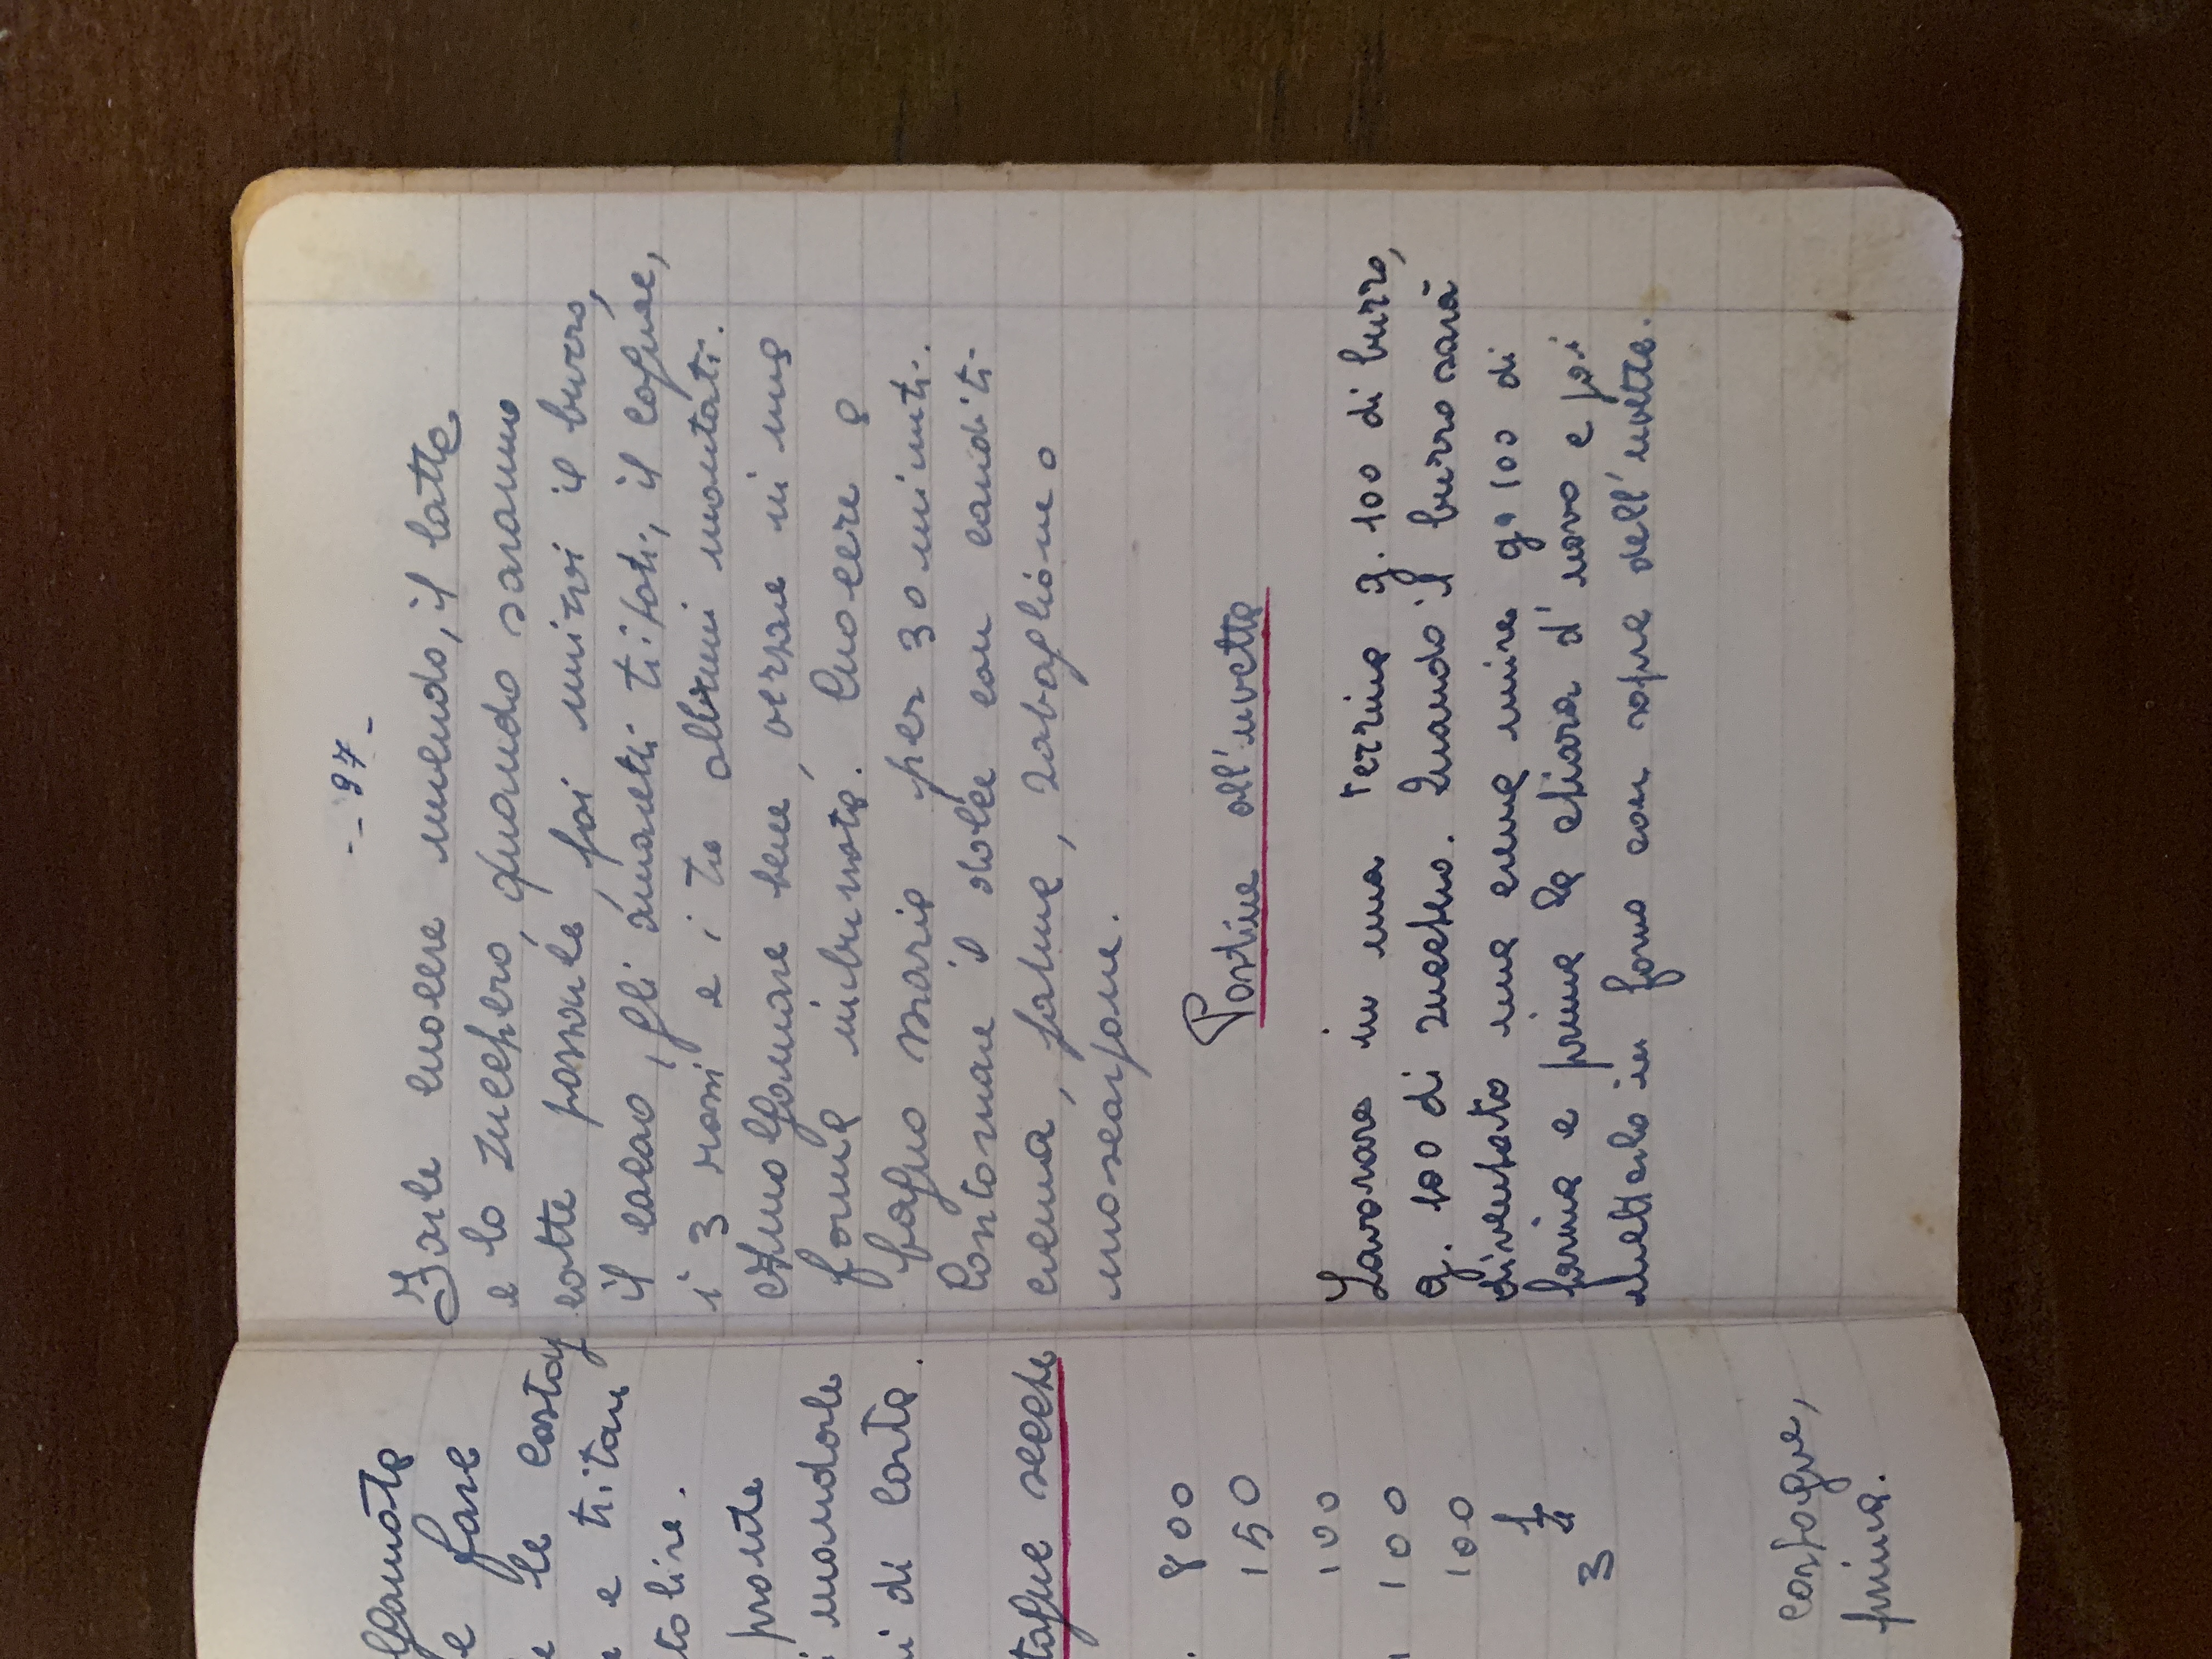 lgamata
e fare
e le castag
e e tritare
tolire.
pronte
i mandorle
i di carta.
tagne secche
. 800
150
100
100
100
1/4
3
castagne,
prima.
-- 97 -
Farle cuocere unendo, il latte
e lo zucchero, quando saranno
cotte passarle, poi unirvi il burro,
il cacao, gli amaretti tritati, il cognac,
i 3 rossi e i tre albumi montati.
Amalgamare bene, versare in una
forma imburrata. Cuocere a
bagno maria per 30 minuti.
Contornare il dolce con canditi
crema, panna, zabaglione o
mascarpone.
Pastine all'uvetta
Lavorare in una terrina g. 100 di burro,
g. 100 di zucchero. Quando il burro sarà
diventato una crema unire g. 100 di
farina e prima la chiara d'uovo e poi
metterlo in forno con sopra dell'uvetta.